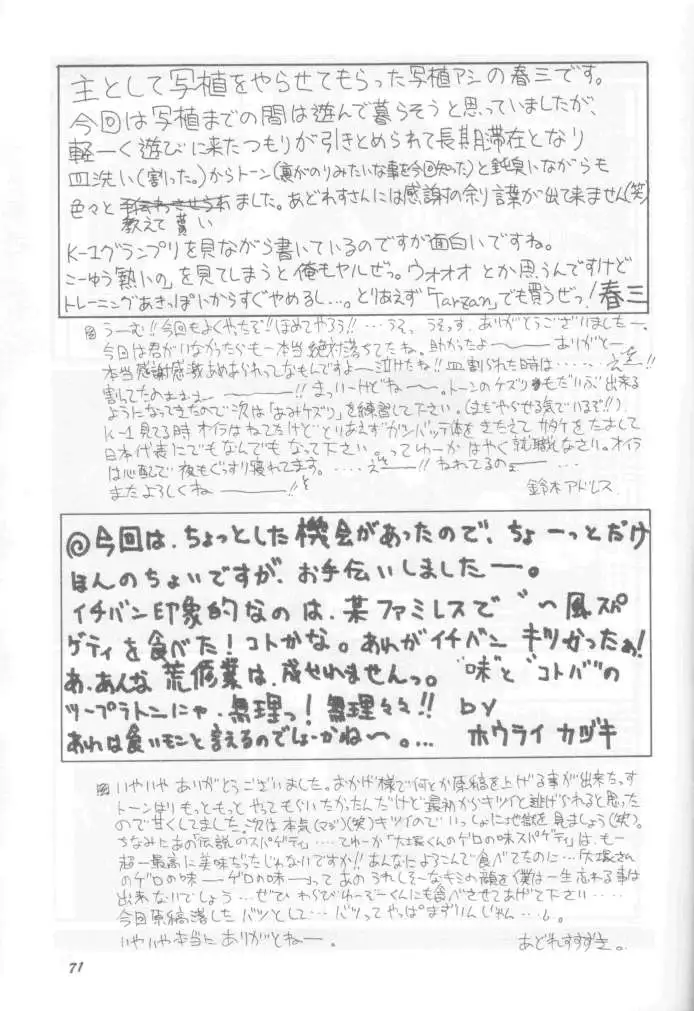 主として写植をやらせてもらった写植アシの春三です。
今回は写植までの間は遊んで暮らそうと思っていましたが、
軽ーく遊びに来たつもりが引きとめられて長期滞在となり
皿洗い(割った。)からトーン(裏がのりみたいな事を今回知った)と
色々と 教えて貰い ました。あどれすさんには感謝の余り言葉が出て来ません(笑)
K-1グランプリを見ながら書いているのですが面白いですね。
こーゆう熱いの」を見てしまうと俺もヤルぜっ。ウオオオ とか思うんですけど
トレーニングあきっぽいからすぐやめるし…。とりあえず「Tarzan」でも買うぜっ! 春三
うーむ!!今回もよくやったぞ!!ほめてやろう!!…うそっ うそっす。ありがとうございましたー。
今回は君がいなかったらもー本当絶対落ちてたね。助かったよー ありがとー
本当感謝感激あめあられってなもんですよー泣けたね!!皿割られた時は……
割ってたのまえぇー!!まっいーけどねー。トーンのケズリもだいぶ出来る
ようになってきたので次は「あみケズリ」を練習して下さい。(まだやらせる気でいるぞ!!)
K-1見てる時オイラはねてたけどとりあえずガンバッテ体をきたえてサタケをたおして
日本代表にでもなんでもなって下さい。ってゆーかはやく就職しなさい。オイラ
は心配で夜もぐっすり寝れてます。……!!ねれてるのぉー…
またよろしくねー!!
鈴木アドレス
◎今回は、ちょっとした機会があったので、ちょーっとだけ
ほんのちょいですが、お手伝いしましたー。
イチバン印象的なのは、某ファミレスで゛〜風スパ
ゲティを食べた!コトかな。あれがイチバン キツかったぁ!
あ、あんな荒修業は、成せれませんっ。"味"と"コトバ"の
ツープラトンにゃ、無理っ!無理々々!! by
あれは食いモンと言えるのでしょーかね〜。… ホウライ カヅキ
いやいやありがとうございました。おかげ様で何とか原稿を上げる事が出来ちっす
トーンはりもっともっとやってもらいたかったんだけど最初からキツイと逃げられると思った
ので甘くしてました。次は本気(マジ)(笑)キツイのでいっしょに地獄を見ましょう(笑)。
ちなみにあの伝説のスパゲティ……てゆーか「大塚くんのゲロの味スパゲティ」は、もー
超一最高に美味だったじゃないですか!!あんなによろこんで食べてたのに…「大塚さん
のゲロの味ーゲロの味ー」ってあのうれしそーなキミの顔を僕は一生忘れる事は
出来ないでしょう…ぜひわらびゅーぞーくんにも食べさせてあげて下さい……
今回原稿落したバツとして…バツってやっぱまずいんじゃん…。
いやいや本当にありがとねー。
あどれすすずき。
71